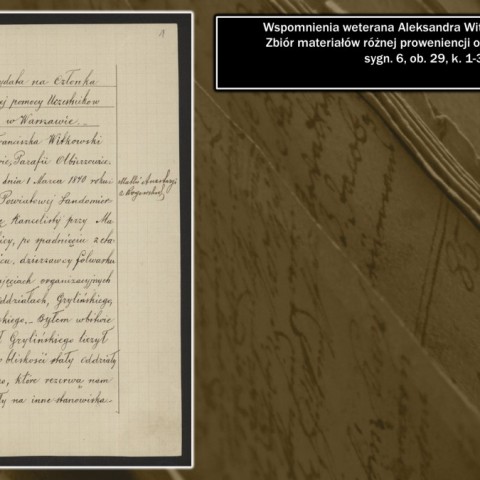 Wspomnienia weterana Aleksandra Wit
Zbiór materiałów różnej proweniencji o
sygn. 6, ob. 29, k. 1-3
1
ydata na Członka
ej pomocy Uczestników
w Warszawie. –
ranciszka Witkowski
wie, Parafii Olbierzowice
dnia 1 Marca 1840 roku
Matki Anastazyi
z Rogowskich
Powiatowej Sandomier
Kancelisty przy Ma
icy, po spadnięciu z eta
ica, dzierżawcy folwarku
zajęciach organizacyjnych
oddziałach, Grylińskiego,
skiego. – Byłem w bitwie
Grylińskiego liczył
bliskości stały oddziały
go, które rezerwą nam
ły na inne stanowiska –